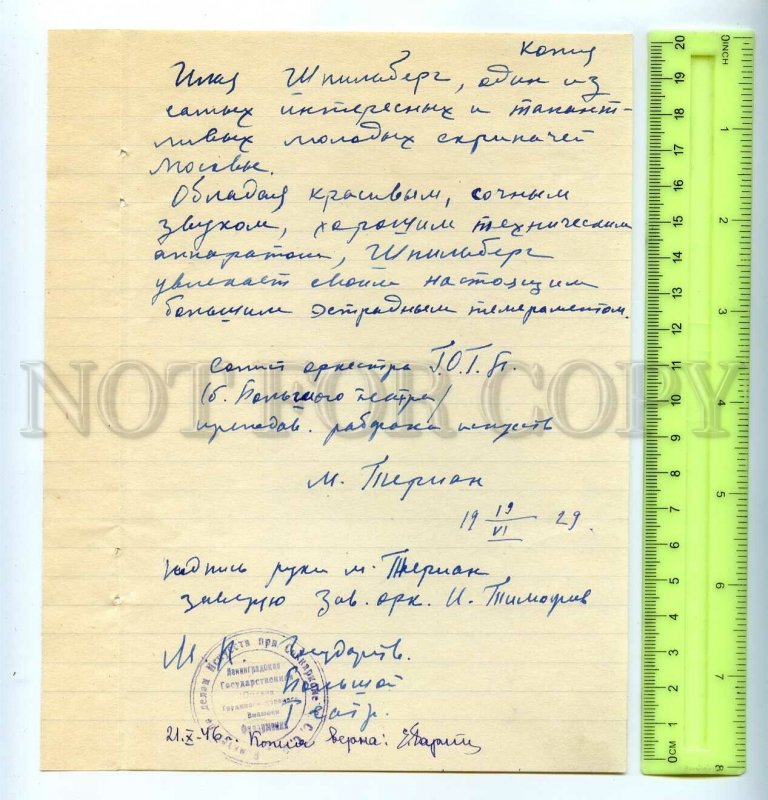 Копия
Илья Шпильберг, один из
самых интересных и талант-
ливых молодых скрипачей
Москвы.
Обладая красивым, сочным
звуком, хорошим техническим
аппаратом, Шпильберг
увлекает своим настоящим
большим эстрадным темераментом.
солист оркестра Г.О.Т.
(б. Большого театра)
преподав. рабфака искусств
М. Териан
19 19/VI 29.
подпись руки М. Териан
заверяю Зав. орк. И. Тимофеев
М П Государств.
Большой
Театр.
Ленинградская
Государственная
Филармония
21.X-46 г. Копия верна:
NOT FOR COPY
INCH
1
2
3
4
5
6
7
8
20
19
18
17
16
15
14
13
12
11
10
9
8
7
6
5
4
3
2
1
0см